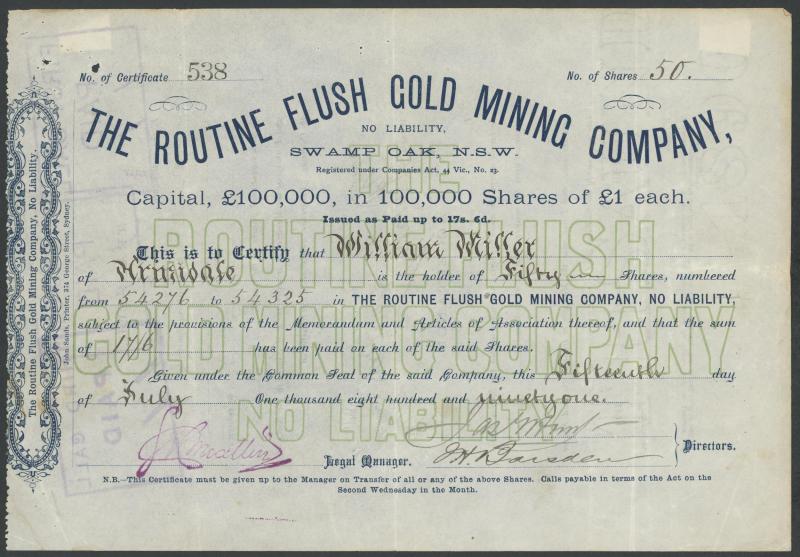 No. of Certificate 538
No. of Shares 50.
THE ROUTINE FLUSH GOLD MINING COMPANY,
NO LIABILITY,
SWAMP OAK, N.S.W.
Registered under Companies Act, 44 Vic., No. 23.
Capital, £100,000, in 100,000 Shares of £1 each.
Issued as Paid up to 17s. 6d.
This is to Certify that William Miller
of Armidale is the holder of Fifty Shares, numbered
from 54276 to 54325 in THE ROUTINE FLUSH GOLD MINING COMPANY, NO LIABILITY,
subject to the provisions of the Memorandum and Articles of Association thereof, and that the sum
of 17/6 has been paid on each of the said Shares.
Given under the Common Seal of the said Company, this Fifteenth day
of July One thousand eight hundred and ninety one.
Legal Manager.
Directors.
N.B.—This Certificate must be given up to the Manager on Transfer of all or any of the above Shares. Calls payable in terms of the Act on the
Second Wednesday in the Month.
The Routine Flush Gold Mining Company, No Liability.
John Sands, Printer, 374 George Street, Sydney.
THE
ROUTINE FLUSH
GOLD MINING COMPANY
NO LIABILITY
PAID